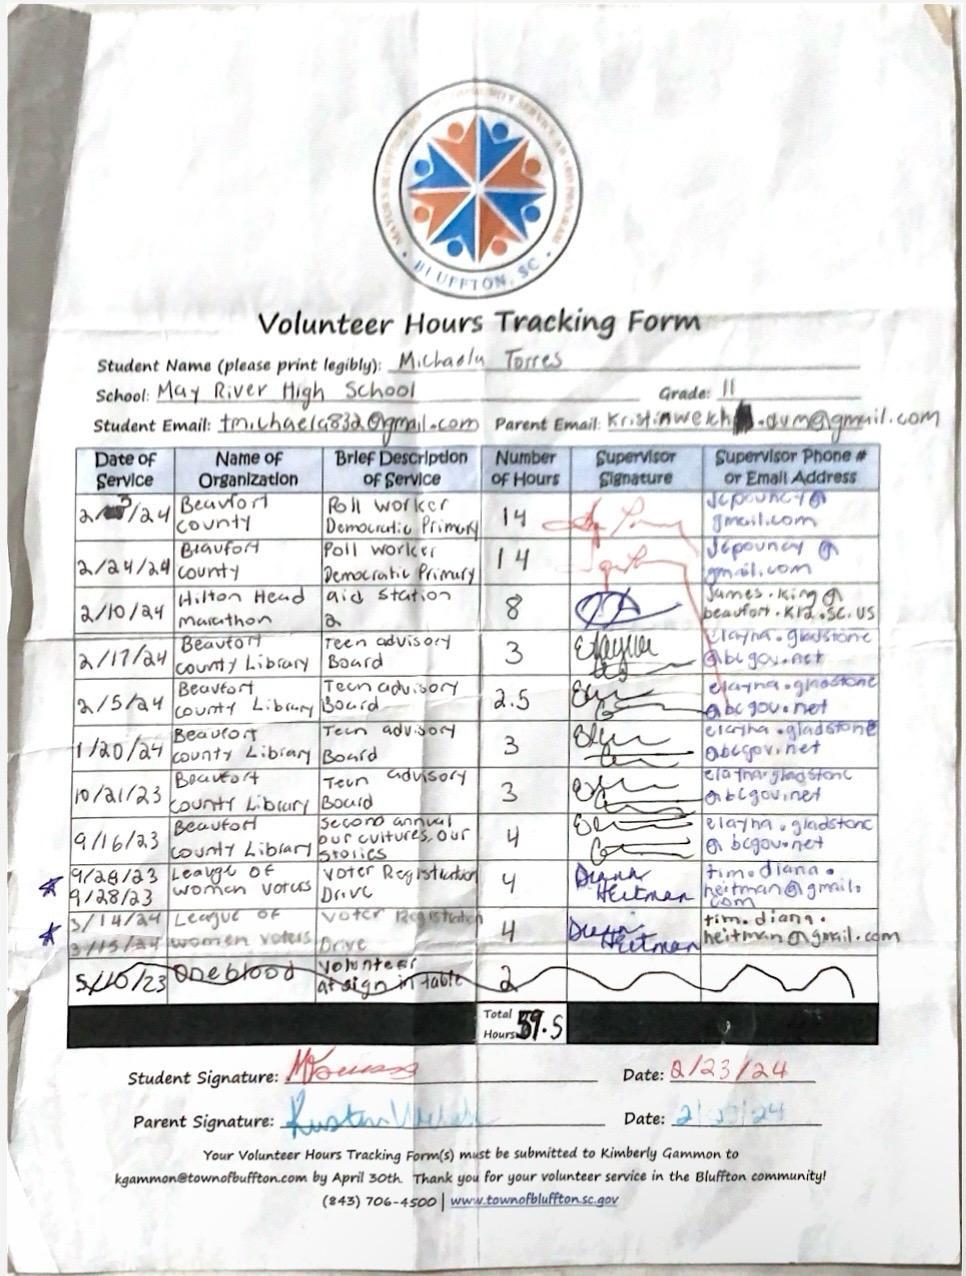 COMMUNITY SERVICE AWARD PROGRAM
• BLUFFTON, SC •
Volunteer Hours Tracking Form
Student Name (please print legibly): Michaela Torres
School: May River High School Grade: 11
Student Email: tmichaela832@gmail.com Parent Email: Kristinwelch .dvm@gmail.com
Date of Service Name of Organization Brief Description of Service Number of Hours Supervisor Signature Supervisor Phone # or Email Address
2/3/24 Beaufort county Poll worker Democratic Primary 14 Jcpouncy@gmail.com
2/24/24 Beaufort county Poll worker Democratic Primary 14 Jcpouncy@gmail.com
2/10/24 Hilton Head marathon aid station 2 8 James.King@beaufort.k12.sc.us
2/17/24 Beaufort county Library Teen advisory Board 3 elayna.gladstone@bcgov.net
2/5/24 Beaufort county Library Teen advisory Board 2.5 elayna.gladstone@bcgov.net
1/20/24 Beaufort county Library Teen advisory Board 3 elayna.gladstone@bcgov.net
10/21/23 Beaufort county Library Teen advisory Board 3 elayna.gladstone@bcgov.net
9/16/23 Beaufort county Library Second annual our cultures, our stories 4 elayna.gladstone@bcgov.net
9/28/23 League of women voters Voter Registration Drive 4 Diana Heitman tim.diana.heitman@gmail.com
3/14/24 3/15/24 League of women voters Voter Registration Drive 4 Diana Heitman tim.diana.heitman@gmail.com
5/10/23 Oneblood Volunteer at sign in table 2
Total Hours 59.5
Student Signature: Date: 2/23/24
Parent Signature: Kristin Welch Date: 2/23/24
Your Volunteer Hours Tracking Form(s) must be submitted to Kimberly Gammon to
kgammon@townofbuffton.com by April 30th. Thank you for your volunteer service in the Bluffton community!
(843) 706-4500 | www.townofbluffton.sc.gov